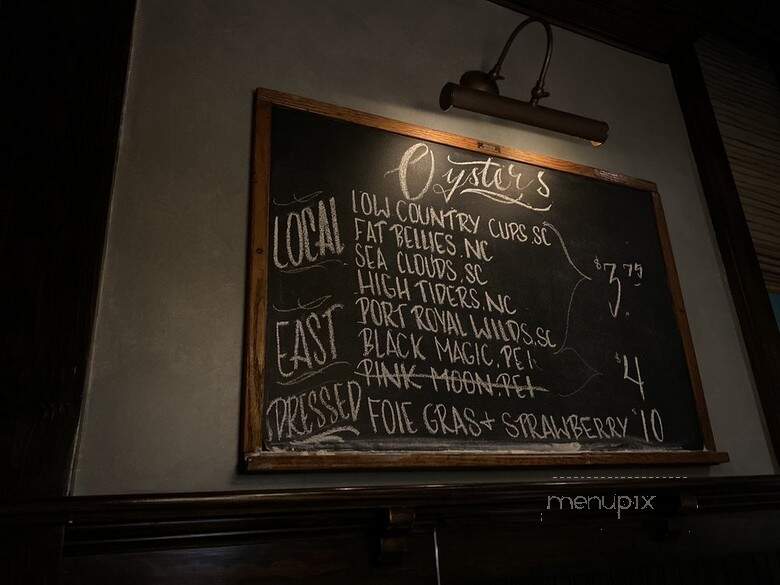 Oysters
LOCAL
LOW COUNTRY CUPS, SC
FAT BELLIES, NC
SEA CLOUDS, SC
HIGH TIDERS, NC
PORT ROYAL WILDS, SC
$3.75
EAST
BLACK MAGIC, PEI
PINK MOON, PEI
$4
DRESSED FOIE GRAS + STRAWBERRY $10
menupix